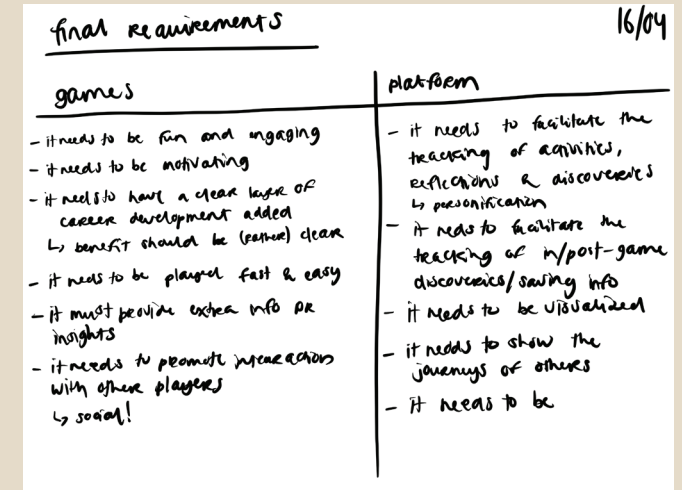 final requirements
16/04
games
- it needs to be fun and engaging
- it needs to be motivating
- it needs to have a clear layer of
career development added
↳ benefit should be (rather) clear
- it needs to be played fast & easy
- it must provide extra info or
insights
- it needs to promote interaction
with other players
↳ social!
platform
- it needs to facilitate the
tracking of activities,
reflections & discoveries
↳ personification
- it needs to facilitate the
tracking of in/post-game
discoveries/saving info
- it needs to be visualized
- it needs to show the
journeys of others
- it needs to be